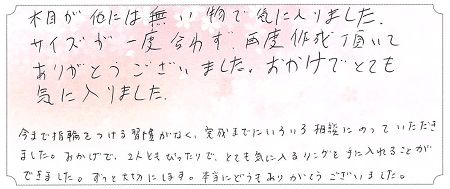 木目が他には無い物で気に入りました。
サイズが一度合わず、再度作成頂いて
ありがとうございました。おかげでとても
気に入りました。
今まで指輪をつける習慣がなく、完成までにいろいろ相談にのっていただき
ました。おかげで、2人ともぴったりで、とても気に入るリングを手に入れることが
できました。ずっと大切にします。本当にどうもありがとうございました。